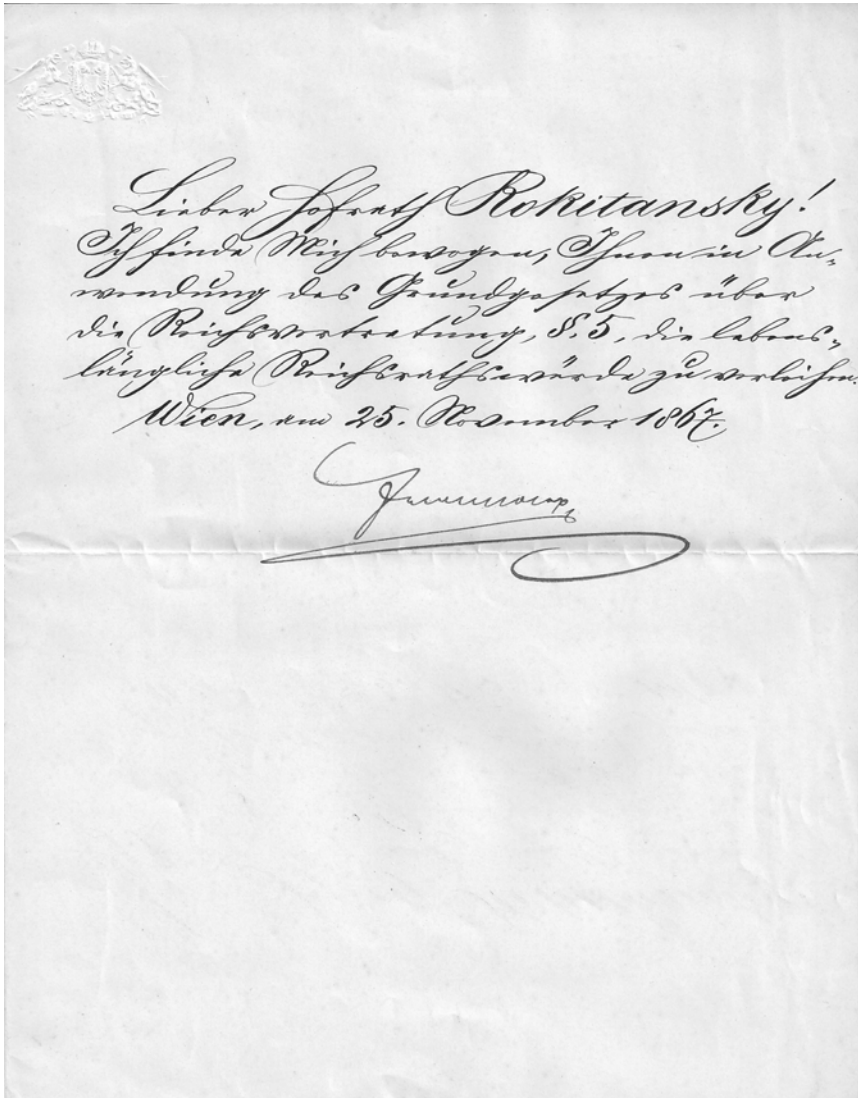 Lieber Hofrath Rokitansky!
Ich finde Mich bewogen, Ihnen in An-
wendung des Grundgesetzes über
die Reichsvertretung, §. 5, die lebens-
längliche Reichsrathswürde zu verleihen.
Wien, am 25. November 1867.
Franz Joseph